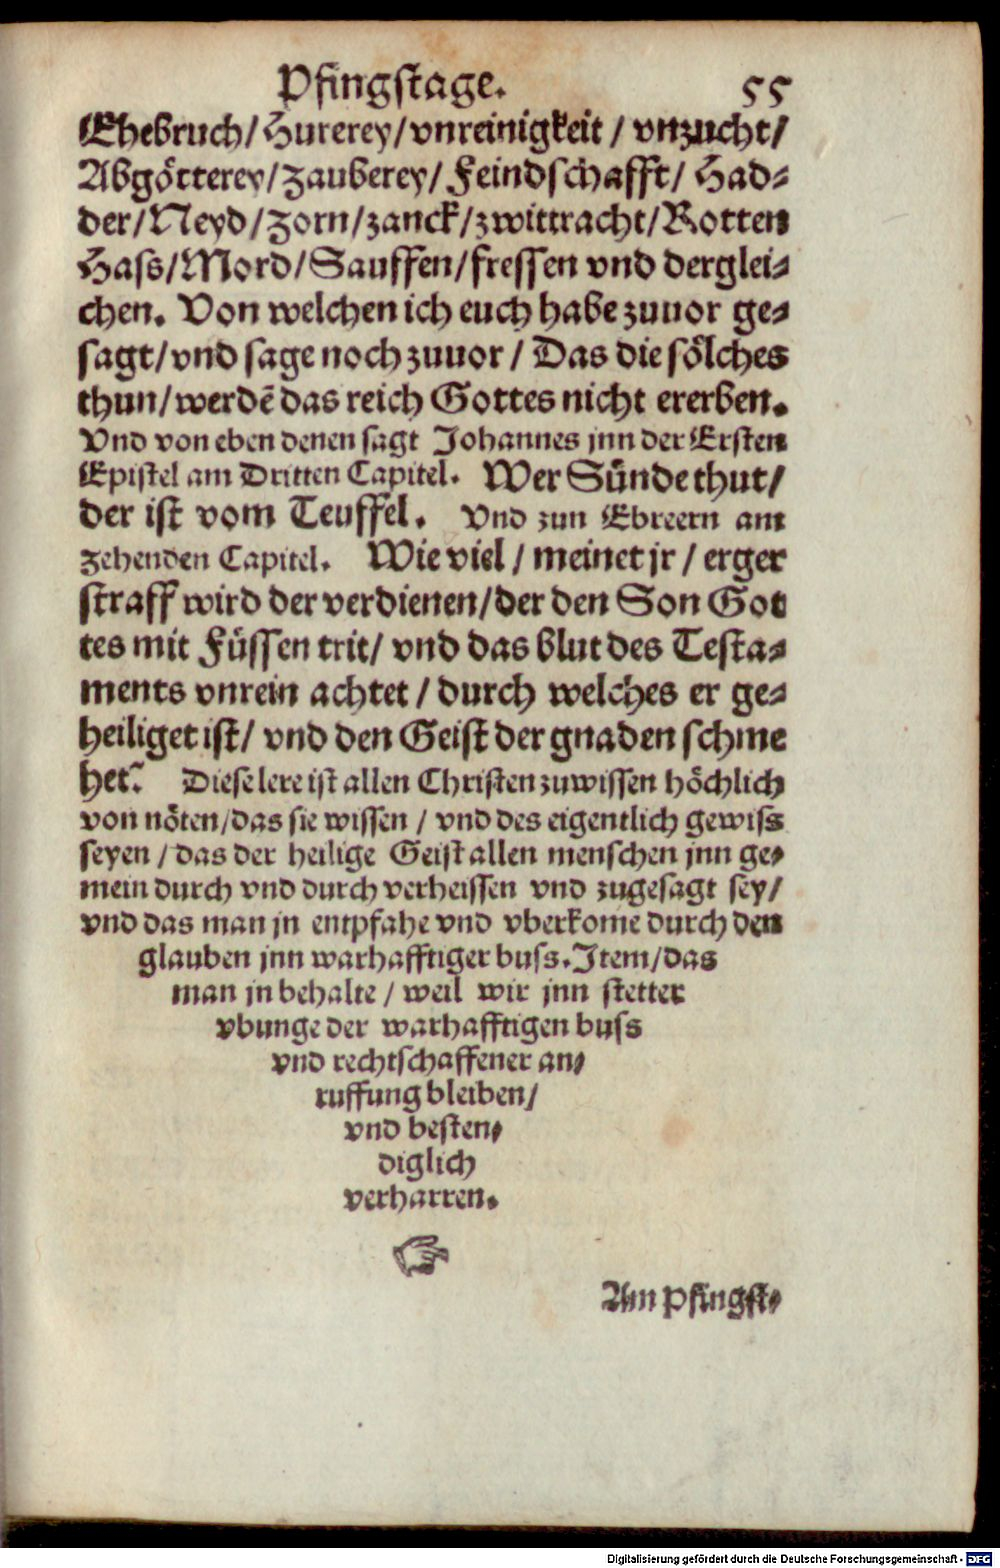 Pfingstage. 55
Ehebruch/ Hurerey/ vnreinigkeit / vnzucht/
Abgötterey/ zauberey/ Feindschafft/ Had⸗
der/ Neyd/ zorn/ zanck/ zwittracht/ Rotten
Hass/ Mord/ Sauffen/ fressen vnd derglei⸗
chen. Von welchen ich euch habe zuuor ge⸗
sagt/ vnd sage noch zuuor / Das die sölches
thun/ werdē das reich Gottes nicht ererben.
Vnd von eben denen sagt Johannes jnn der Ersten
Epistel am Dritten Capitel. Wer Sünde thut/
der ist vom Teuffel. Vnd zun Ebreern am
zehenden Capitel. Wie viel / meinet jr / erger
straff wird der verdienen/ der den Son Got
tes mit Füssen trit/ vnd das blut des Testa⸗
ments vnrein achtet / durch welches er ge⸗
heiliget ist/ vnd den Geist der gnaden schme
het? Diese lere ist allen Christen zuwissen höchlich
von nöten/ das sie wissen / vnd des eigentlich gewiss
seyen / das der heilige Geist allen menschen jnn ge⸗
mein durch vnd durch verheissen vnd zugesagt sey/
vnd das man jn entpfahe vnd vberkome durch den
glauben jnn warhafftiger buss. Item/ das
man jn behalte / weil wir jnn stetter
vbunge der warhafftigen buss
vnd rechtschaffener an⸗
ruffung bleiben/
vnd besten⸗
diglich
verharren.
Am Pfingst⸗
Digitalisierung gefördert durch die Deutsche Forschungsgemeinschaft - DFG